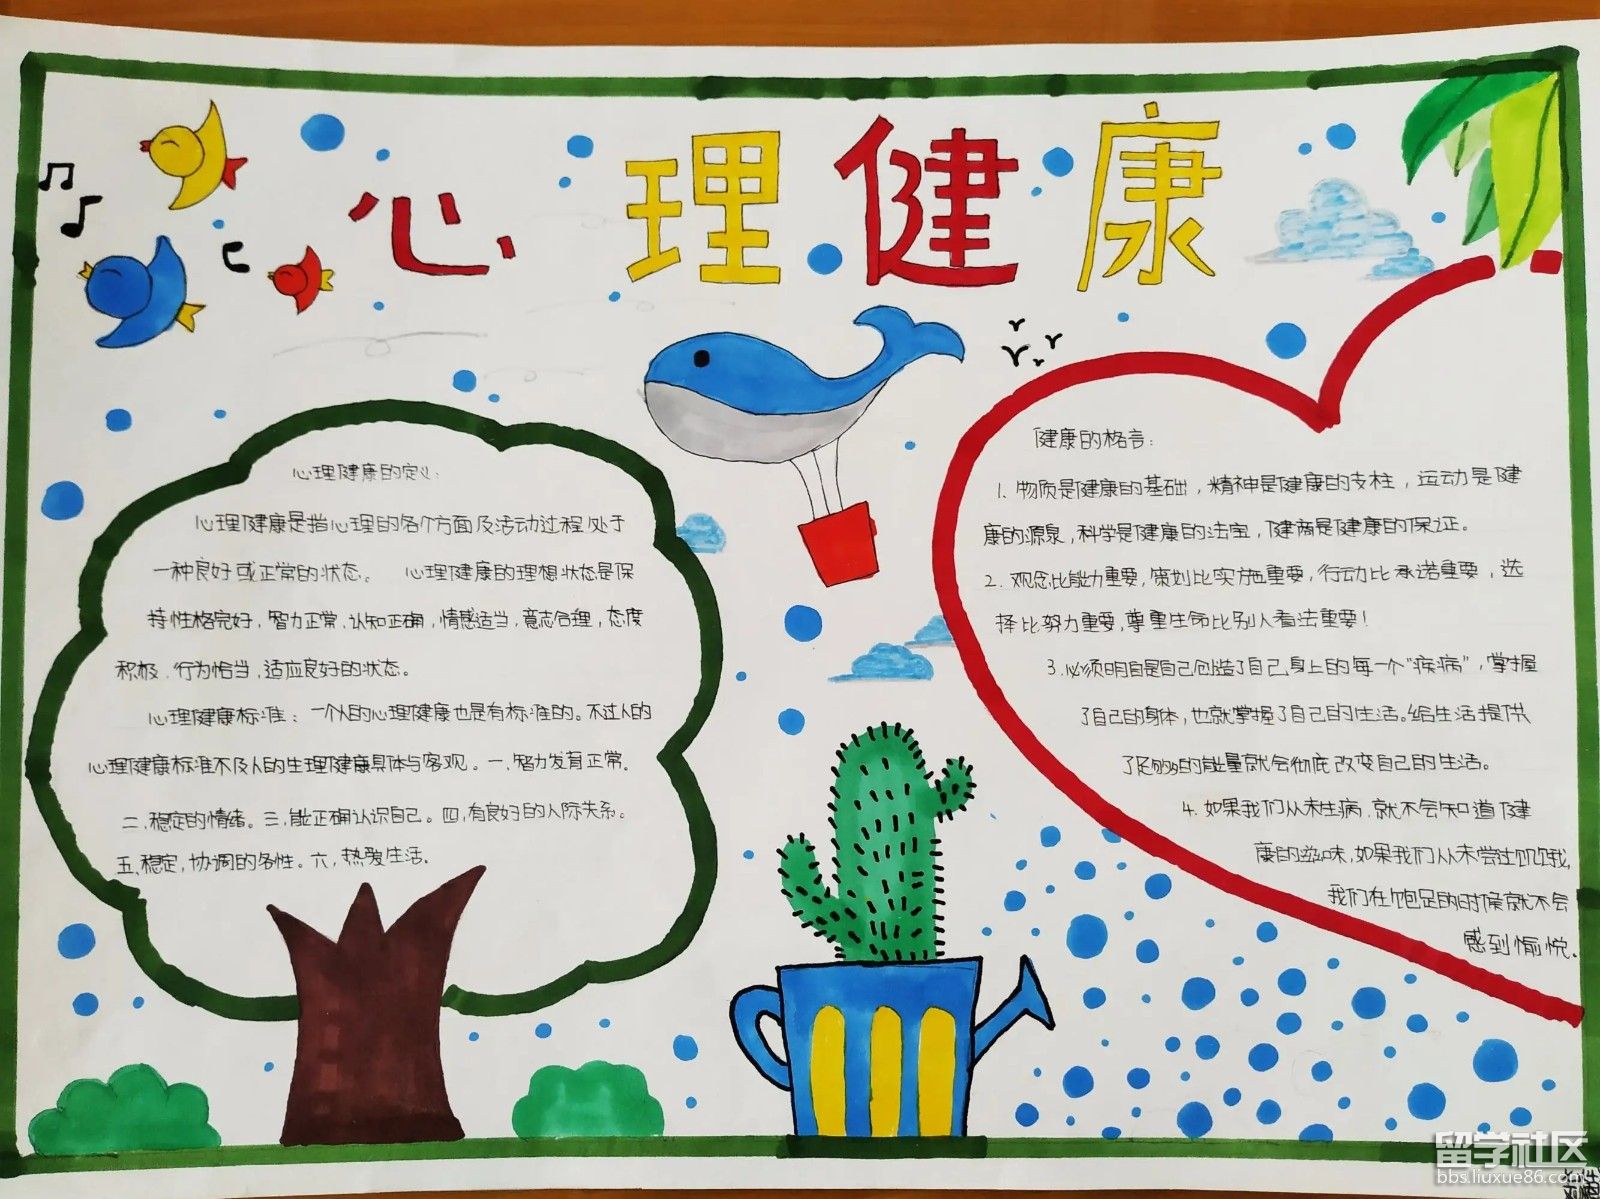 心理健康
心理健康的定义：
心理健康是指心理的各个方面及活动过程处于
一种良好或正常的状态。 心理健康的理想状态是保
持性格完好，智力正常、认知正确，情感适当，意志合理，态度
积极、行为恰当，适应良好的状态。
心理健康标准：一个人的心理健康也是有标准的。不过人的
心理健康标准不及人的生理健康具体与客观。一、智力发育正常。
二、稳定的情绪。三、能正确认识自己。四、有良好的人际关系。
五、稳定，协调的各性。六、热爱生活。
健康的格言：
1. 物质是健康的基础，精神是健康的支柱，运动是健
康的源泉，科学是健康的法宝，健商是健康的保证。
2. 观念比能力重要，策划比实施重要，行动比承诺重要，选
择比努力重要，尊重生命比别人看法重要！
3.必须明白是自己创造了自己身上的每一个“疾病”，掌握
了自己的身体，也就掌握了自己的生活。给生活提供
了足够的能量就会彻底改变自己的生活。
4. 如果我们从未生病，就不会知道健
康的滋味，如果我们从未尝过饥饿，
我们在饱足的时候就不会
感到愉悦。
留学社区
bbs.liuxue86.com